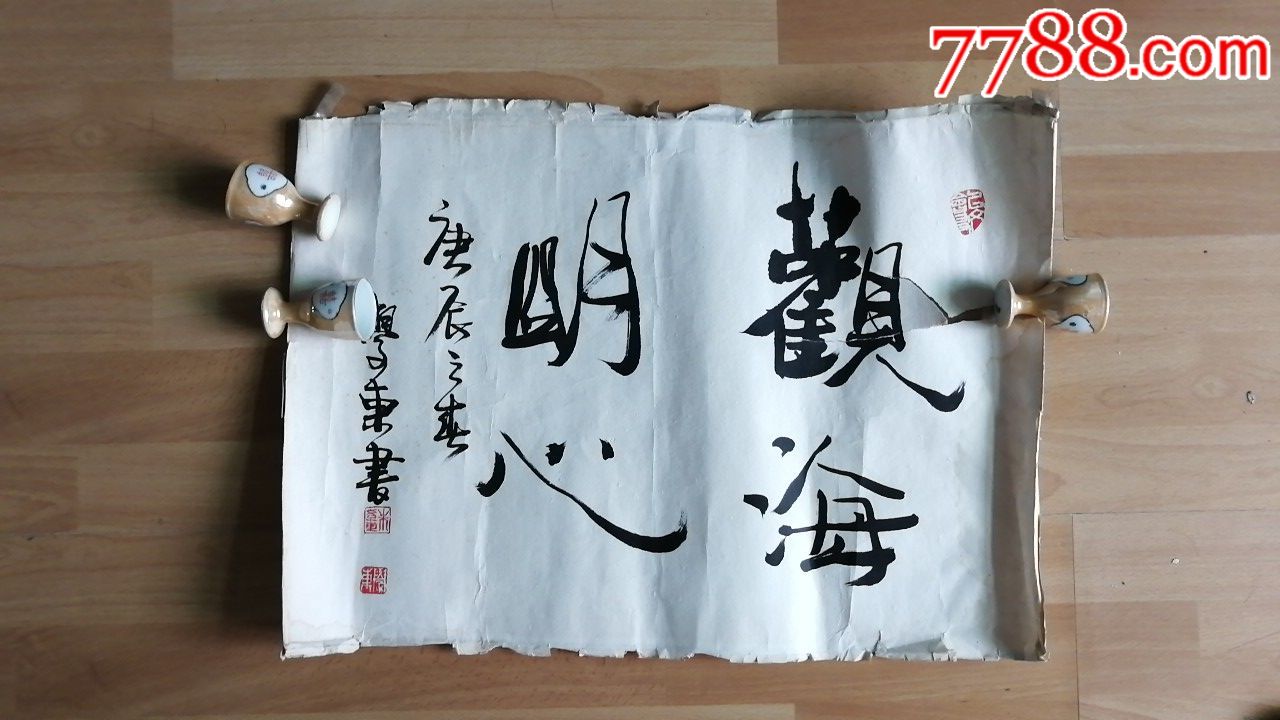 7788.com
觀海
明心
庚辰之春
學東書